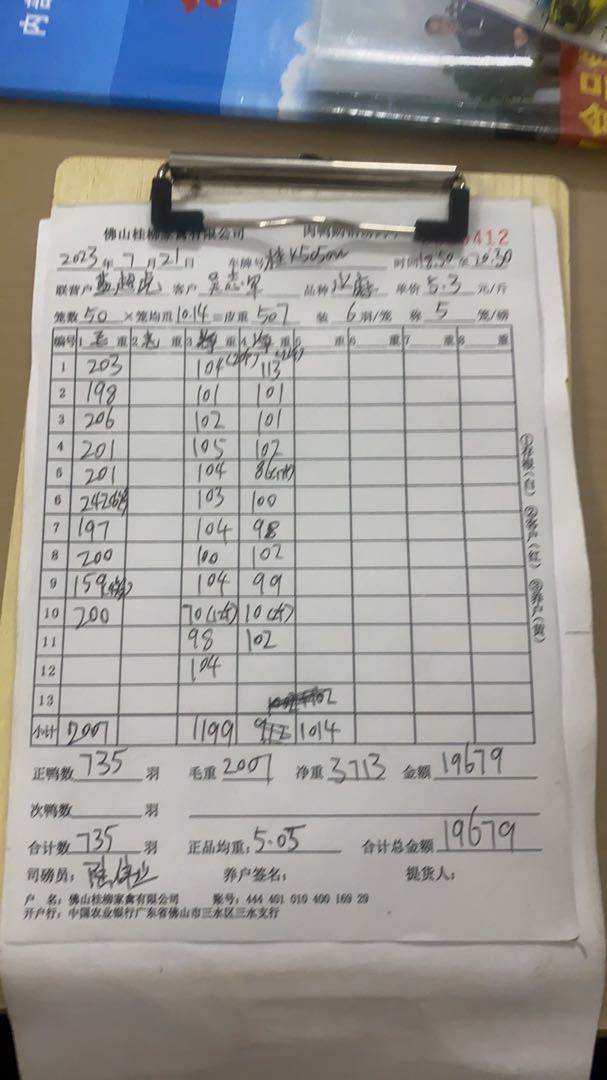 内
佛山桂柳家禽有限公司
412
2023年7月21日 车牌号桂K 时间18:50至20:30
联营户 客户 品种 单价5.3元/斤
笼数50×笼均重10.14=皮重507 装6羽/笼 称5笼/磅
编号 1 毛 重 2 毛 重 3 重 4 重 5 重 6 重 7 重 8 重
1 203 104 113
2 198 101 101
3 206 102 101
4 201 105 102
5 201 104 86
6 242 103 100
7 197 104 98
8 200 100 102
9 159 104 99
10 200 70 10
11 98 102
12 104
13
小计 2007 1199 1014
正鸭数735羽 毛重2007 净重3713 金额19679
次鸭数 羽
合计数735羽 正品均重:5.05 合计总金额19679
司磅员: 养户签名: 提货人:
户 名:佛山桂柳家禽有限公司 账号:444 401 010 400 169 29
开户行:中国农业银行广东省佛山市三水区三水支行
①存根(白) ②客户(红) ③养户(黄)